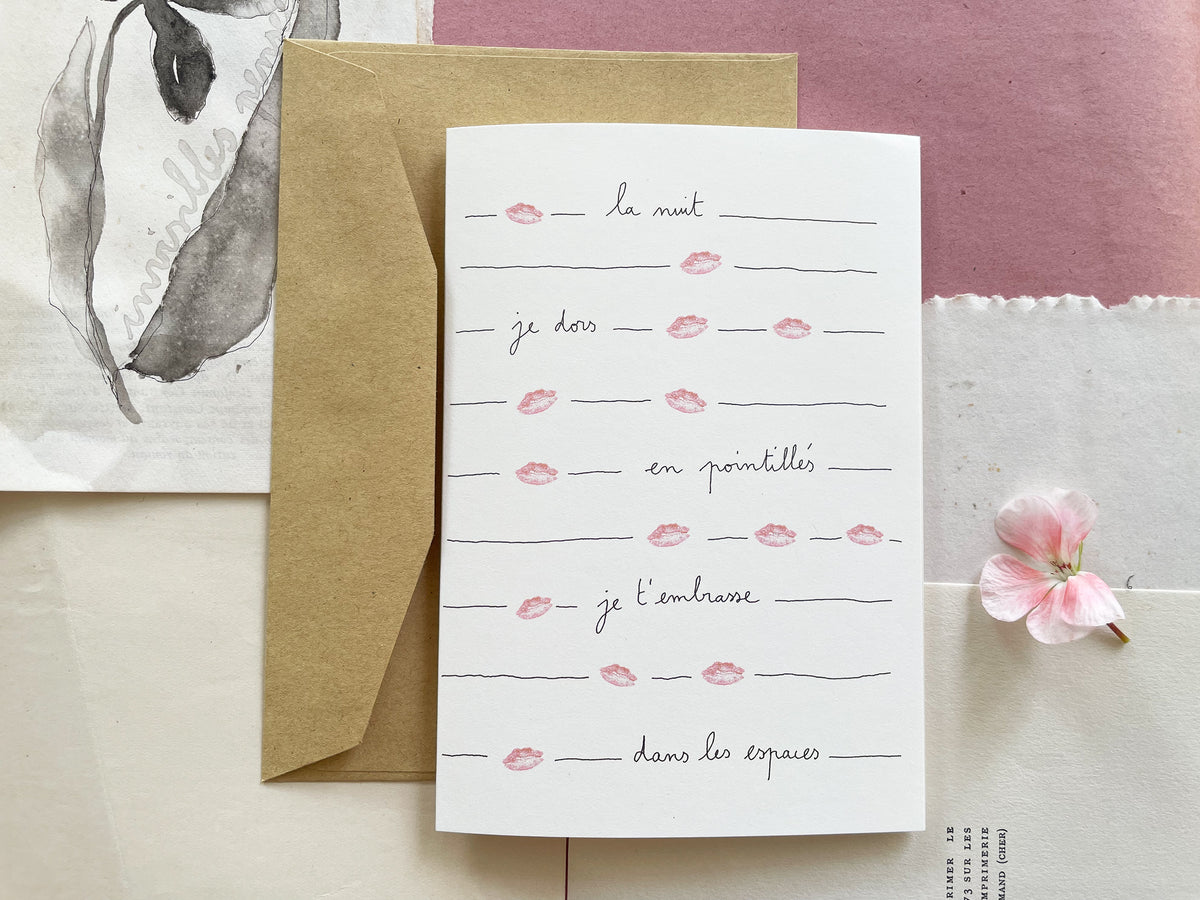 la nuit
je dors
en pointillés
je t'embrasse
dans les espaces
invisibles
RIMER LE
73 SUR LES
MPRIMERIE
MAND (CHER)